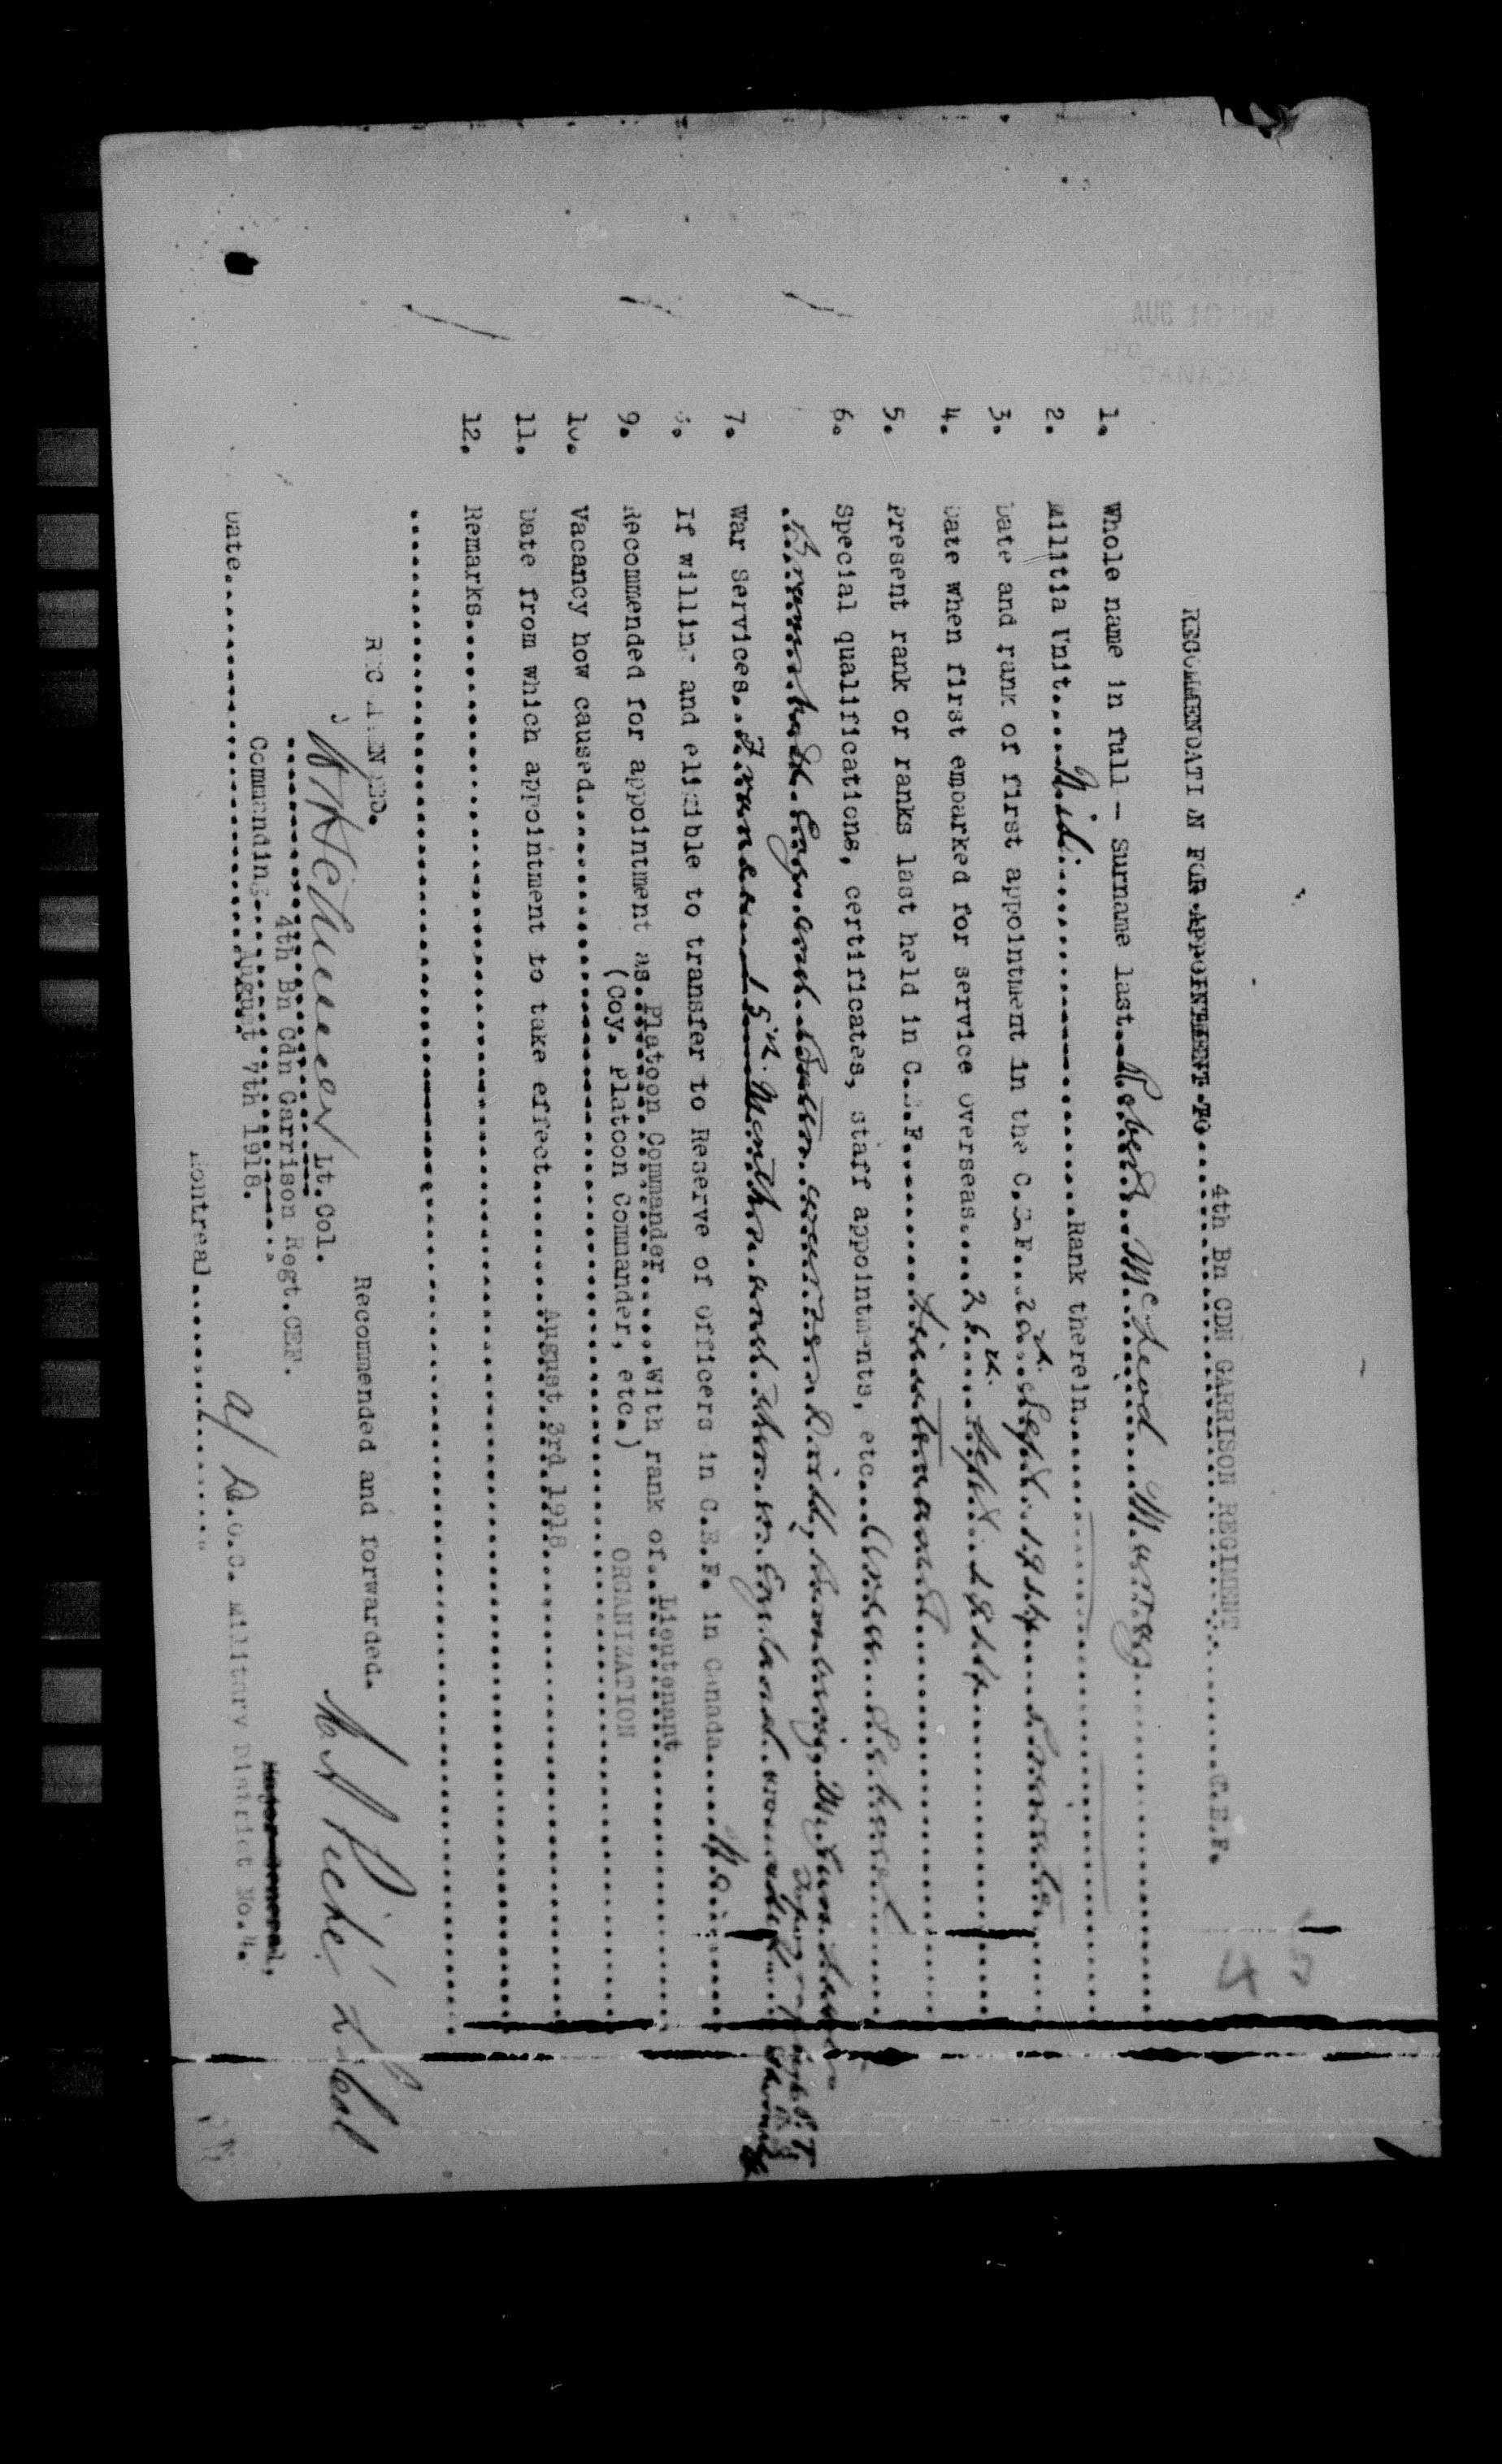 AUG 10 1918
CANADA
RECOMMENDATI N FOR APPOINTMENT TO.... 4th Bn CDN GARRISON REGIMENT ........C.E.F.
1. Whole name in full - Surname last..Robert..McLeod Murray
2. Militia Unit....Nil..........Rank therein..........
3. Date and rank of first appointment in the C.E.F...Sept. 1914....Private
4. Date when first embarked for service overseas....26th Sept. 1914
5. Present rank or ranks last held in C.E.F........Lieutenant
6. Special qualifications, certificates, staff appointments, etc...School
Bramshott Eng. and courses in Drill, Bombing, M. Gun
7. War Services..France 15 Months and then in England
8. If willing and eligible to transfer to Reserve of Officers in C.E.F. in Canada.....No
9. Recommended for appointment as. Platoon Commander.....With rank of..Lieutenant
(Coy. Platoon Commander, etc.)
10. Vacancy how caused.......... ORGANIZATION
11. Date from which appointment to take effect........August 3rd 1918
12. Remarks..........
Recommended and forwarded.
Lt. Col.
4th Bn Cdn Garrison Regt. CEF.
Commanding..........
Date.......... August 7th 1918.
Piché
Major General,
a/ D.O.C. Military District No. 4.
Montreal..........